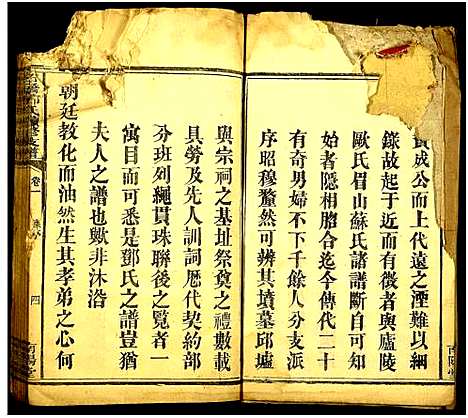 成公而上代遠之湮難以綱
錄故起于近而有徵者與廬陵
歐氏眉山蘇氏諸譜斷自可知
始者隱相脗合迄今傳代二十
有奇男婦不下千餘人分支派
序昭穆釐然可辨其墳墓邱墟
與宗祠之基址祭奠之禮數載
具勞及先人訓詞歷代契約部
分班列繩貫珠聯後之覽者一
寓目而可悉是鄧氏之譜豈猶
夫人之譜也歟非沐浴
朝廷教化而油然生其孝弟之心何
氏 修支譜
卷一
四
南陽堂